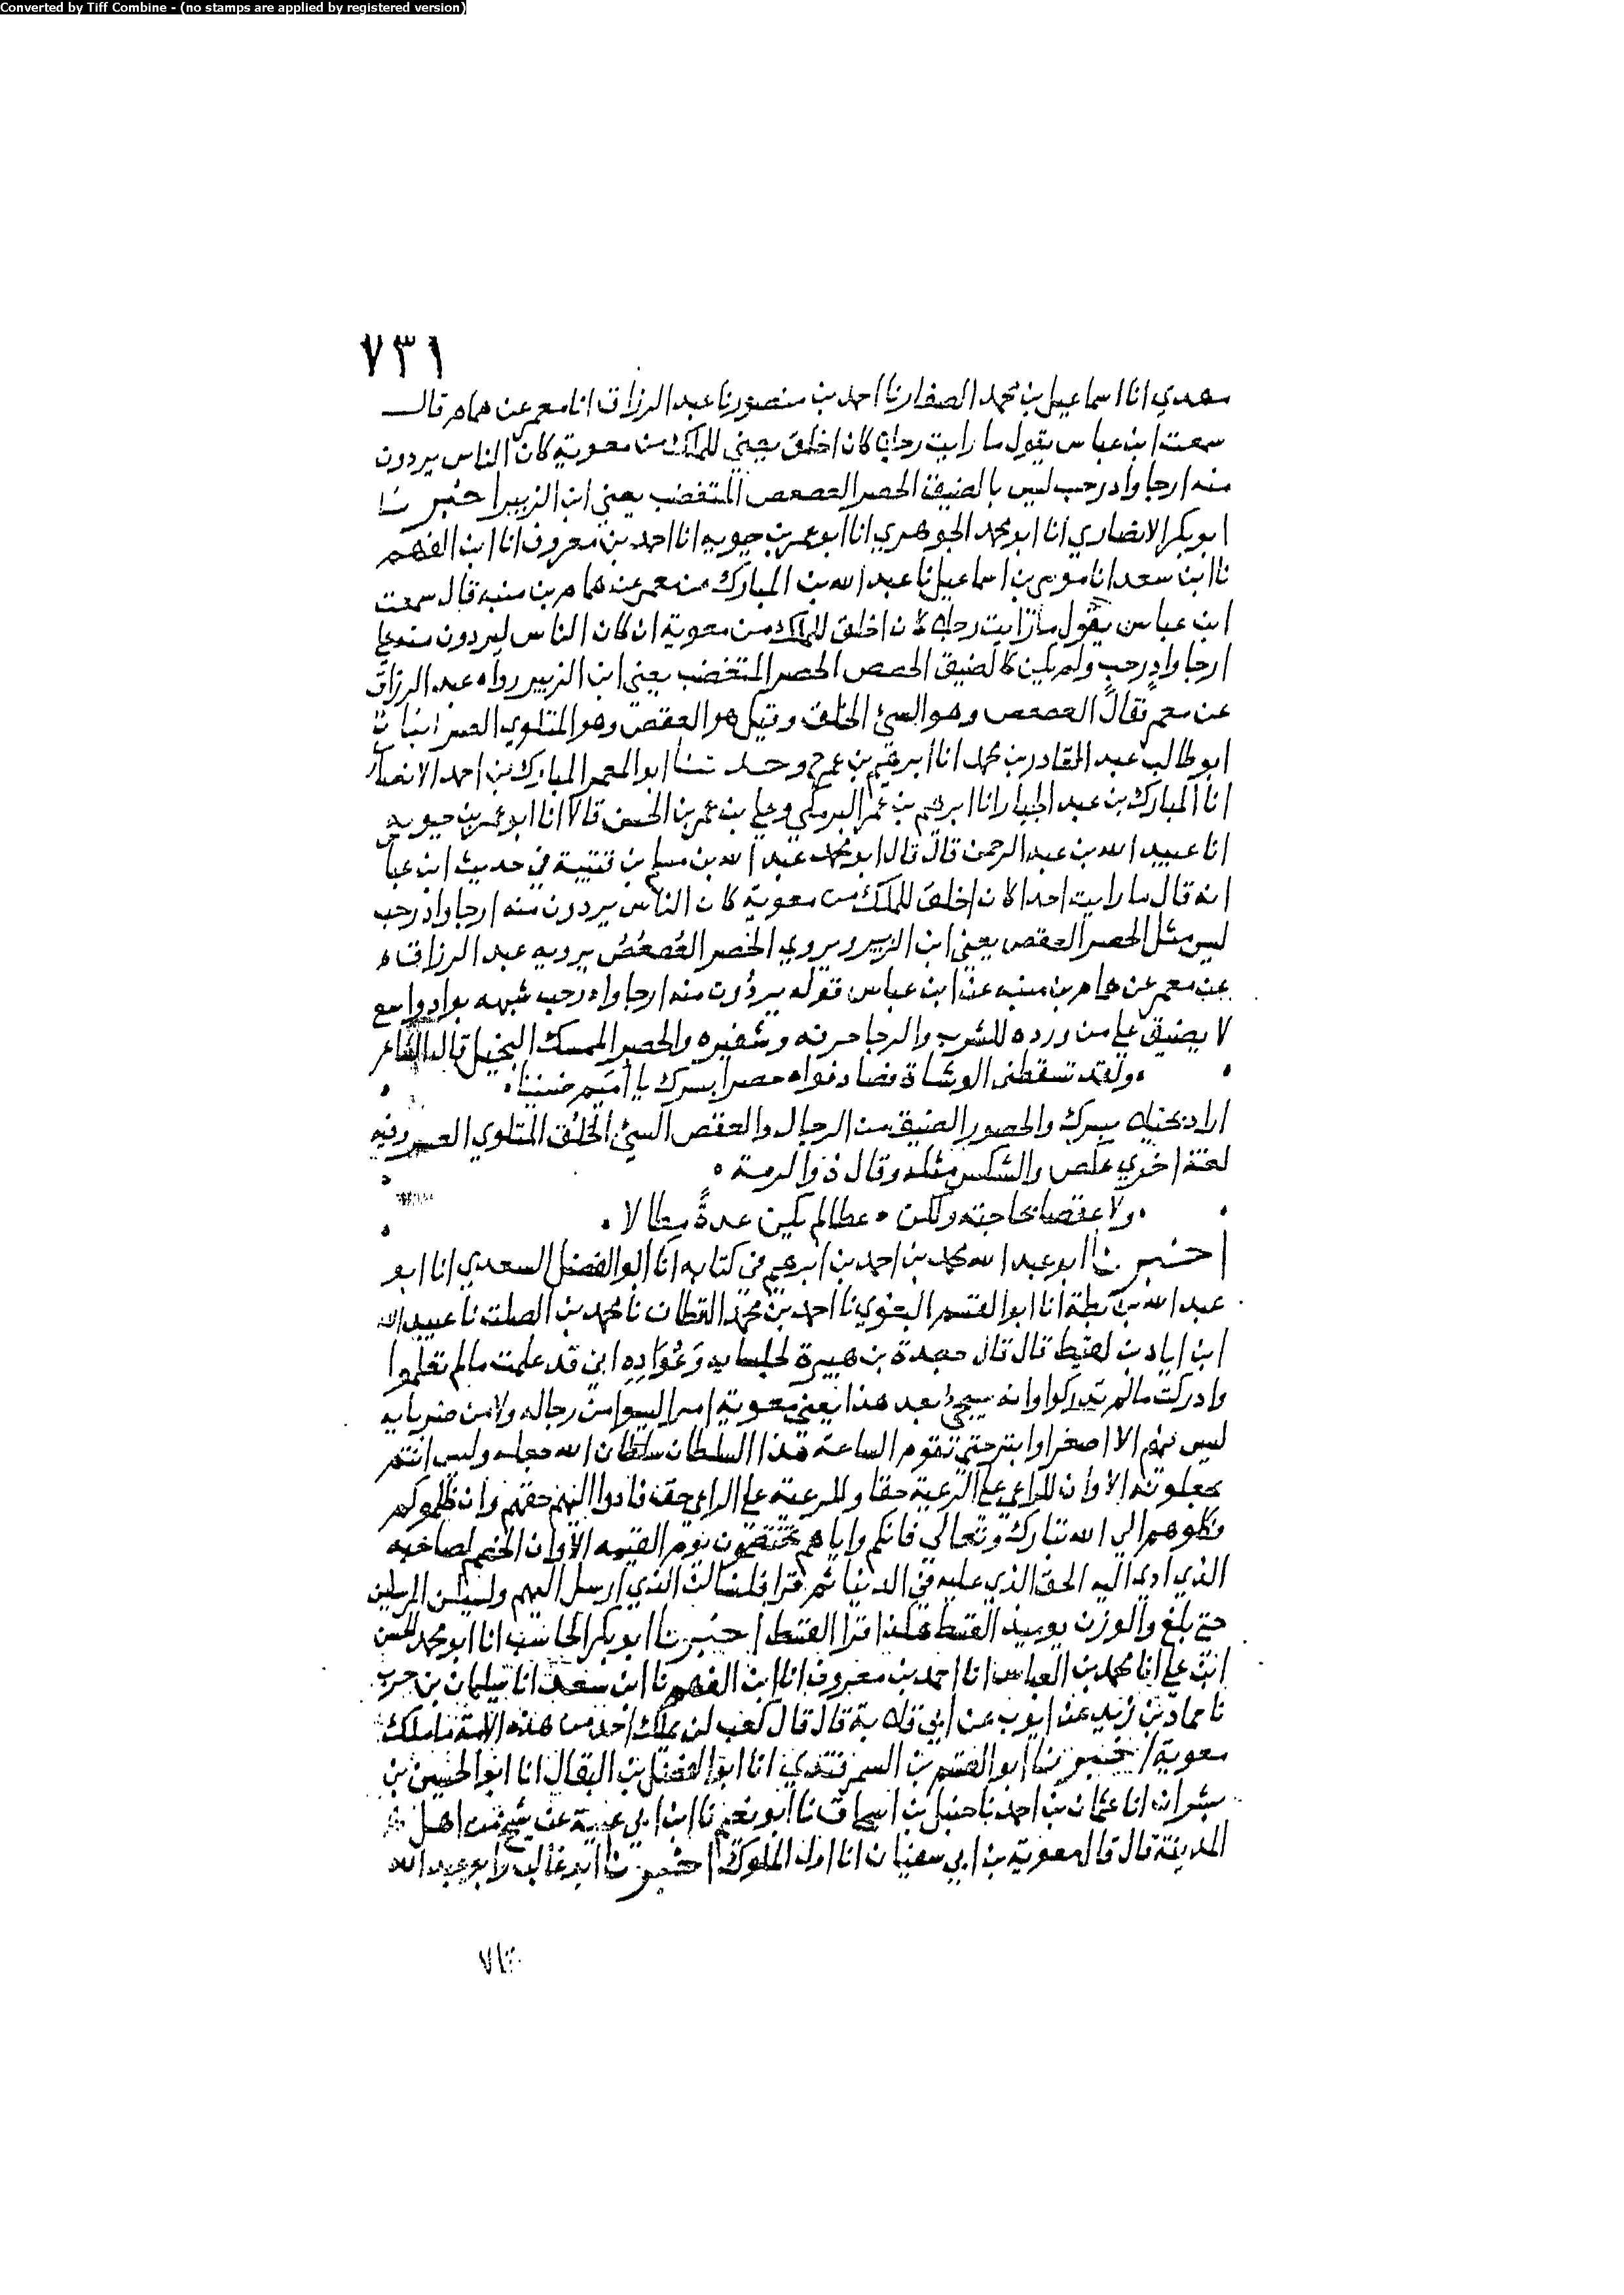 Converted by Tiff Combine - (no stamps are applied by registered version)
٧٣١
مهدي انا اسماعيل بن محمد الصفار نا احمد بن منصور نا عبد الرزاق انا معمر عن همام قال
سمعت ابن عباس يقول ما رايت رجلا كان اخلق يعني للملك من معوية كان الناس يردون
منه ارجا واد رحب ليس بالضيق الحصر العصعص المتغضب يعني ابن الزبير اخبرنا
ابو بكر الانصاري انا ابو محمد الجوهري انا ابو عمر بن حيويه انا احمد بن معروف انا ابن الفهم
نا ابن سعد انا موسى بن اسماعيل نا عبد الله بن المبارك عن معمر عن همام بن منبه قال سمعت
ابن عباس يقول ما رايت رجلا كان اخلق للملك من معوية ان كان الناس ليردون منه علي
ارجا وادٍ رحبٍ ولم يكن كالضيق الحصص الحصر المتغضب يعني ابن الزبير رواه عبد الرزاق
عن معمر فقال العصعص وهو السيئ الخلق وقيل هو العقص وهو الملتوي العسر انبانا
ابو طالب عبد القادر بن محمد انا ابرهيم بن عمر ح وحدثنا ابو المعمر المبارك بن احمد الانصار
انا المبارك بن عبد الجبار انا ابرهيم بن عمر البرمكي وعلي بن عمر بن الحسن قالا انا ابو عمر بن حيويه
انا عبيد الله بن عبد الرحمن قال قال ابو محمد عبد الله بن مسلم بن قتيبة في حديث ابن عبا
انه قال ما رايت احدا كان اخلق للملك من معوية كان الناس يردون منه ارجا واد رحب
ليس مثل الحصر العقص يعني ابن الزبير ويروي الحصر العُصعُصُ يرويه عبد الرزاق
عن معمر عن همام بن منبه عن ابن عباس قوله يردون منه ارجا واد رحب شبهه بواد واسع
لا يضيق علي من ورده للشرب والرجا حرفه وشفيره والحصر الممسك البخيل قال الشاعر
ولقد تسقطني الوشاة فصادفوا حصرا بسرك يا اميم ضنينا
اراد بخيلا بسرك والحصور الضيق من الرجال والعقص السيئ الخُلُق المتلوي العسر وفيه
لغة اخري عكص والشكس مثله وقال ذو الرمة
ولا عقصا بحاجته ولكن عطا لم يكن عدةً مطالا
اخبرنا ابو عبد الله محمد بن احمد بن ابرهيم في كتابه انا ابو الفضل السعدي انا ابو
عبد الله بن بطة انا ابو القسم البغوي نا احمد بن محمد القطان نا محمد بن الصلت نا عبيد الله
ابن اياد بن لقيط قال قال جعدة بن هبيرة لجلسايه وعُوّادِه اني قد علمت ما لم تعلموا
وادركت ما لم تدركوا وانه سيجي بعد هذا يعني معوية امرا ليسوا من رجاله ولا من ضربايه
ليس فيهم الا اصغر او ابتر حتي تقوم الساعة هذا السلطان سلطان الله جعله وليس انتم
تجعلونه الا وان للراعي علي الرعية حقا وللرعية علي الراعي حقا فادوا اليهم حقهم وان ظلموكم
فكلوهم الي الله تبارك وتعالي فانكم واياهم تختصمون يوم القيمه الا وان الخصم لصاحبه
الذي ادي اليه الحق الذي عليه في الدنيا ثم قرا فلنسالن الذين ارسل اليهم ولنسالن المرسلين
حتي بلغ والوزن يوميذ القسط هكذا قرا القسط اخبرنا ابو بكر الحاسب انا ابو محمد الحسن
ابن علي انا محمد بن العباس انا احمد بن معروف انا ابن الفهم نا ابن سعد انا سليمان بن حرب
نا حماد بن زيد عن ايوب عن ابي قلابة قال قال كعب لن يملك احد من هذه الامة ما ملك
معوية اخبرنا ابو القسم بن السمرقندي انا ابو الفضل بن البقال انا ابو الحسين بن
بشران انا عثمان بن احمد نا حنبل بن اسحاق نا ابو نعيم نا ابن ابي عنية عن شيخ من اهل
المدينة قال قال معوية بن ابي سفيان انا اول الملوك اخبرنا ابو غالب وابو عبد الله